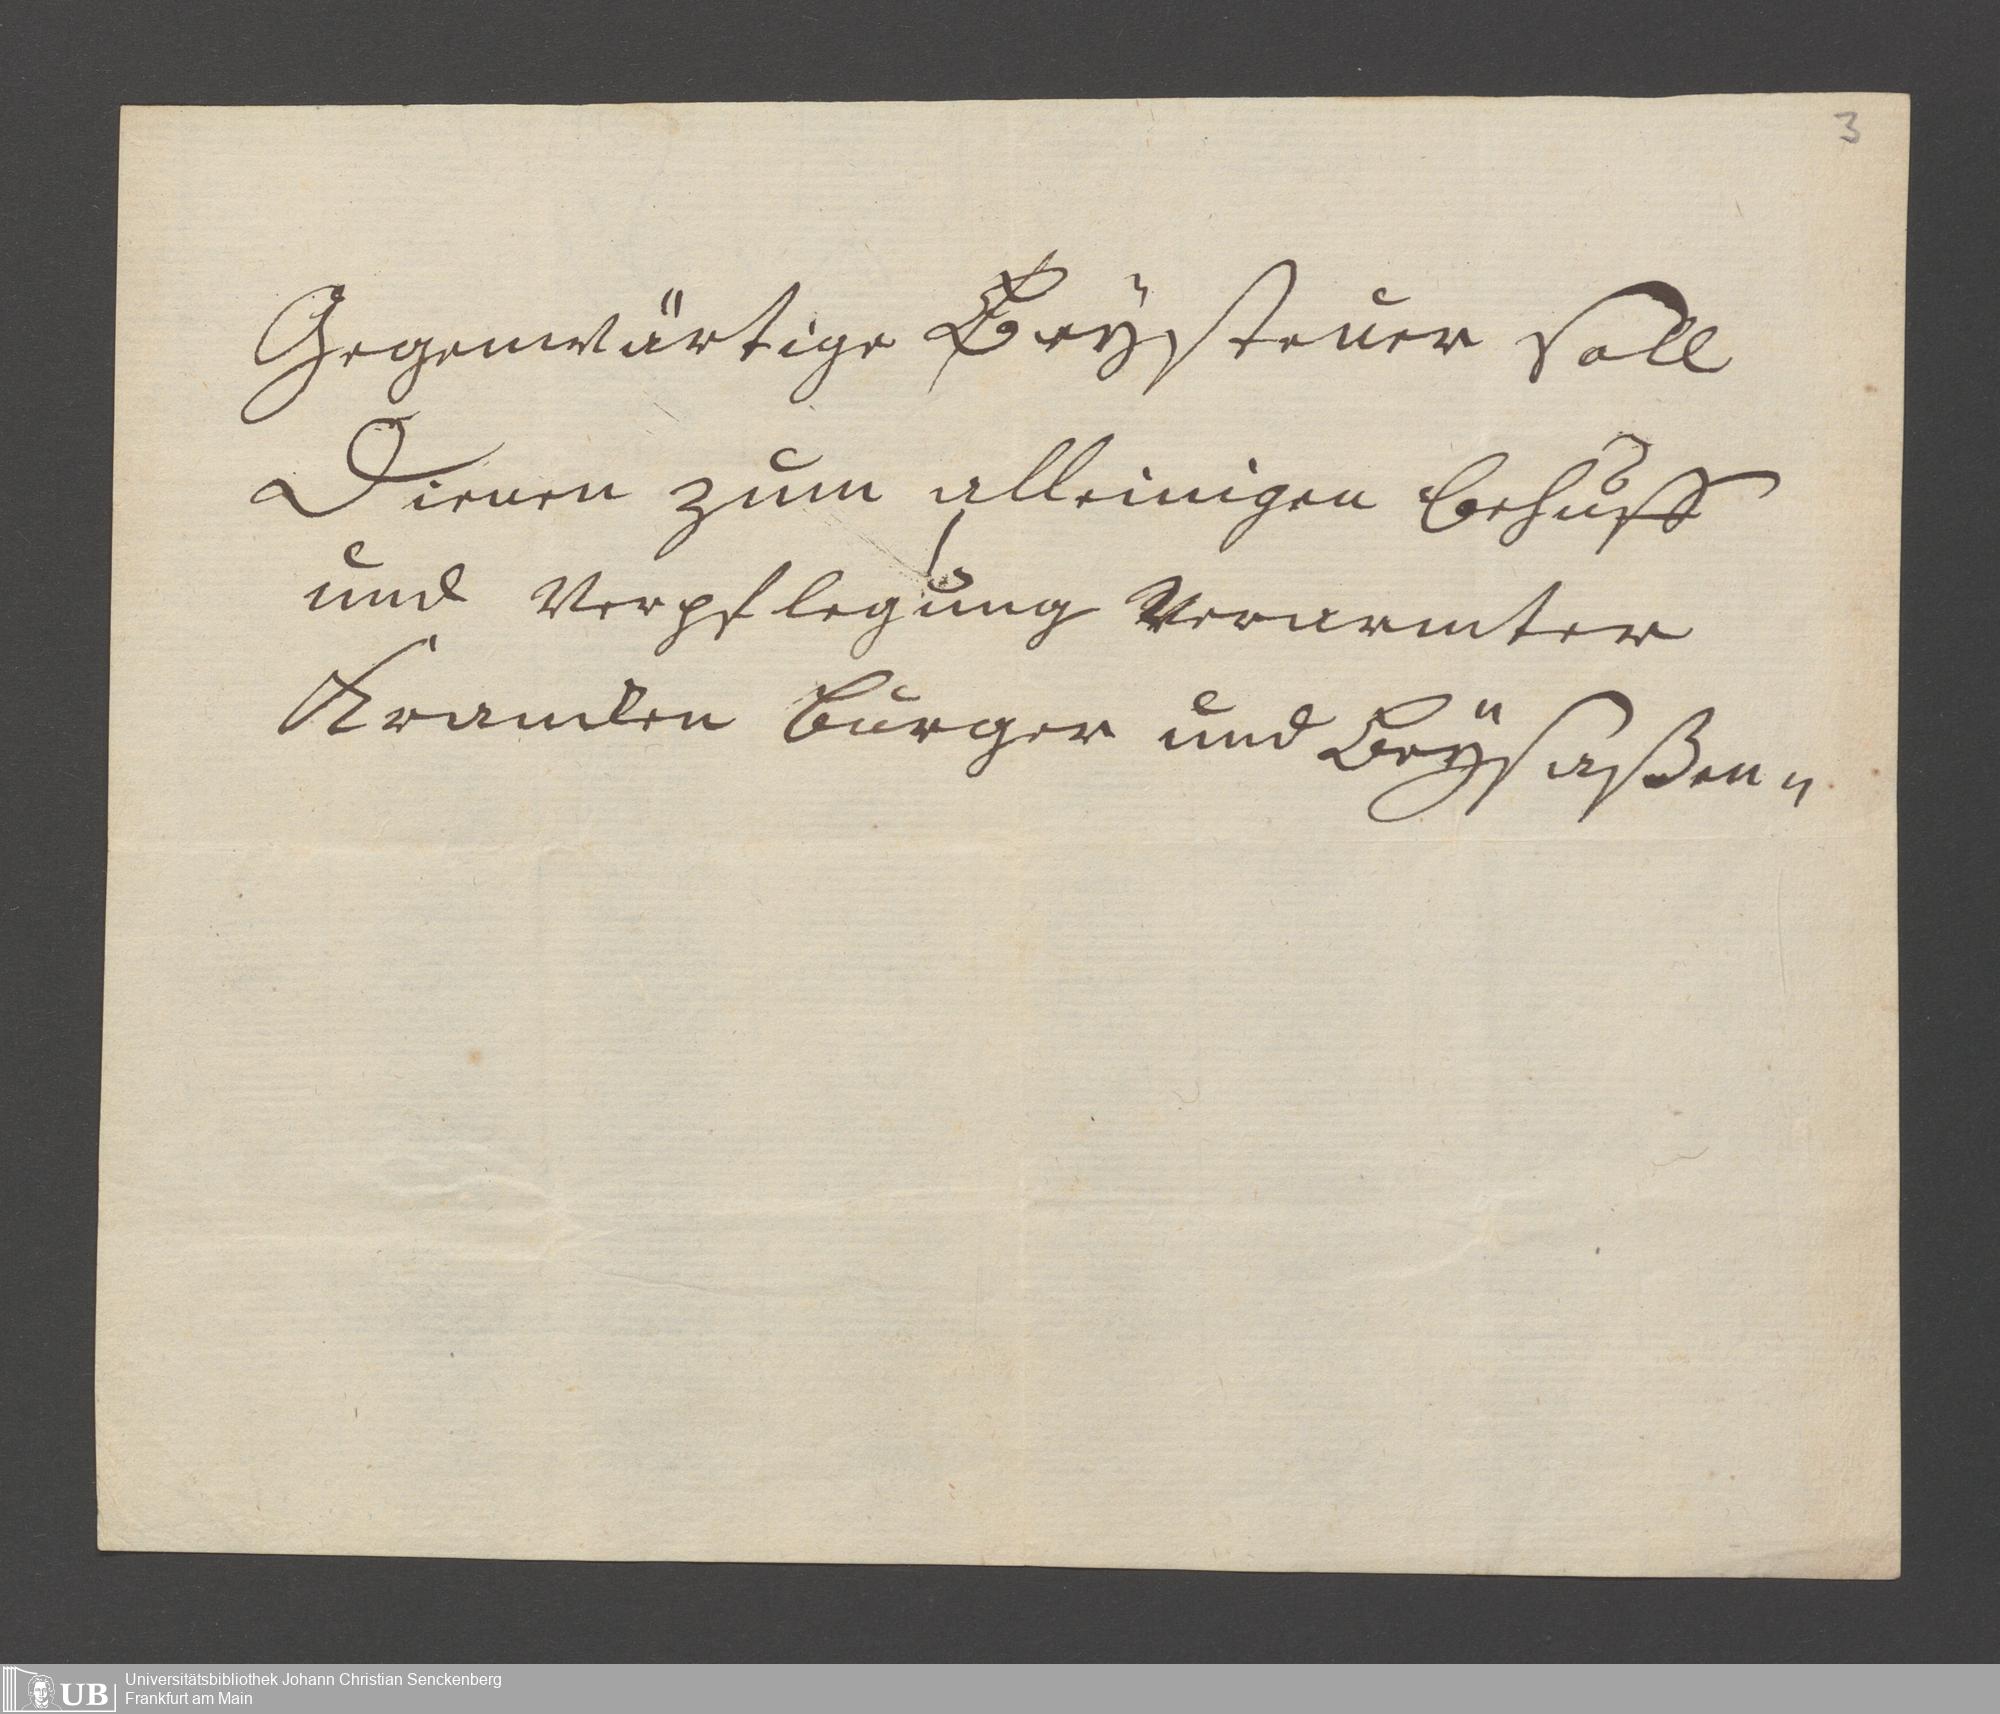 3
Gegenwärtige Beÿsteuer soll
Dienen zum alleinigen Behuff
und Verpflegung Verarmter
Krancken Burger und Beÿsaßen "
UB
Universitätsbibliothek Johann Christian Senckenberg
Frankfurt am Main